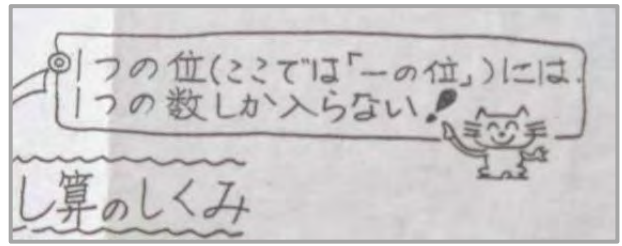 1つの位(ここでは「一の位」)には
1つの数しか入らない!
し算のしくみ